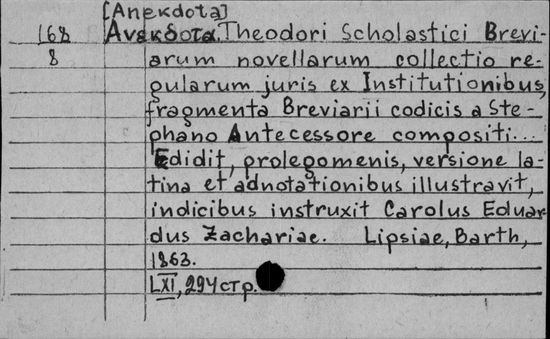 [Anekdota]
168 Ανεκδοτα. Theodori Scholastici Brevi-
8 arum novellarum collectio re-
gularum juris ex Institutionibus,
fragmenta Breviarii codicis a Ste-
phano Antecessore compositi...
Edidit, prolegomenis, versione la-
tina et adnotationibus illustravit,
indicibus instruxit Carolus Eduar
dus Zachariae. Lipsiae, Barth,
1863.
LXI, 294 стр.